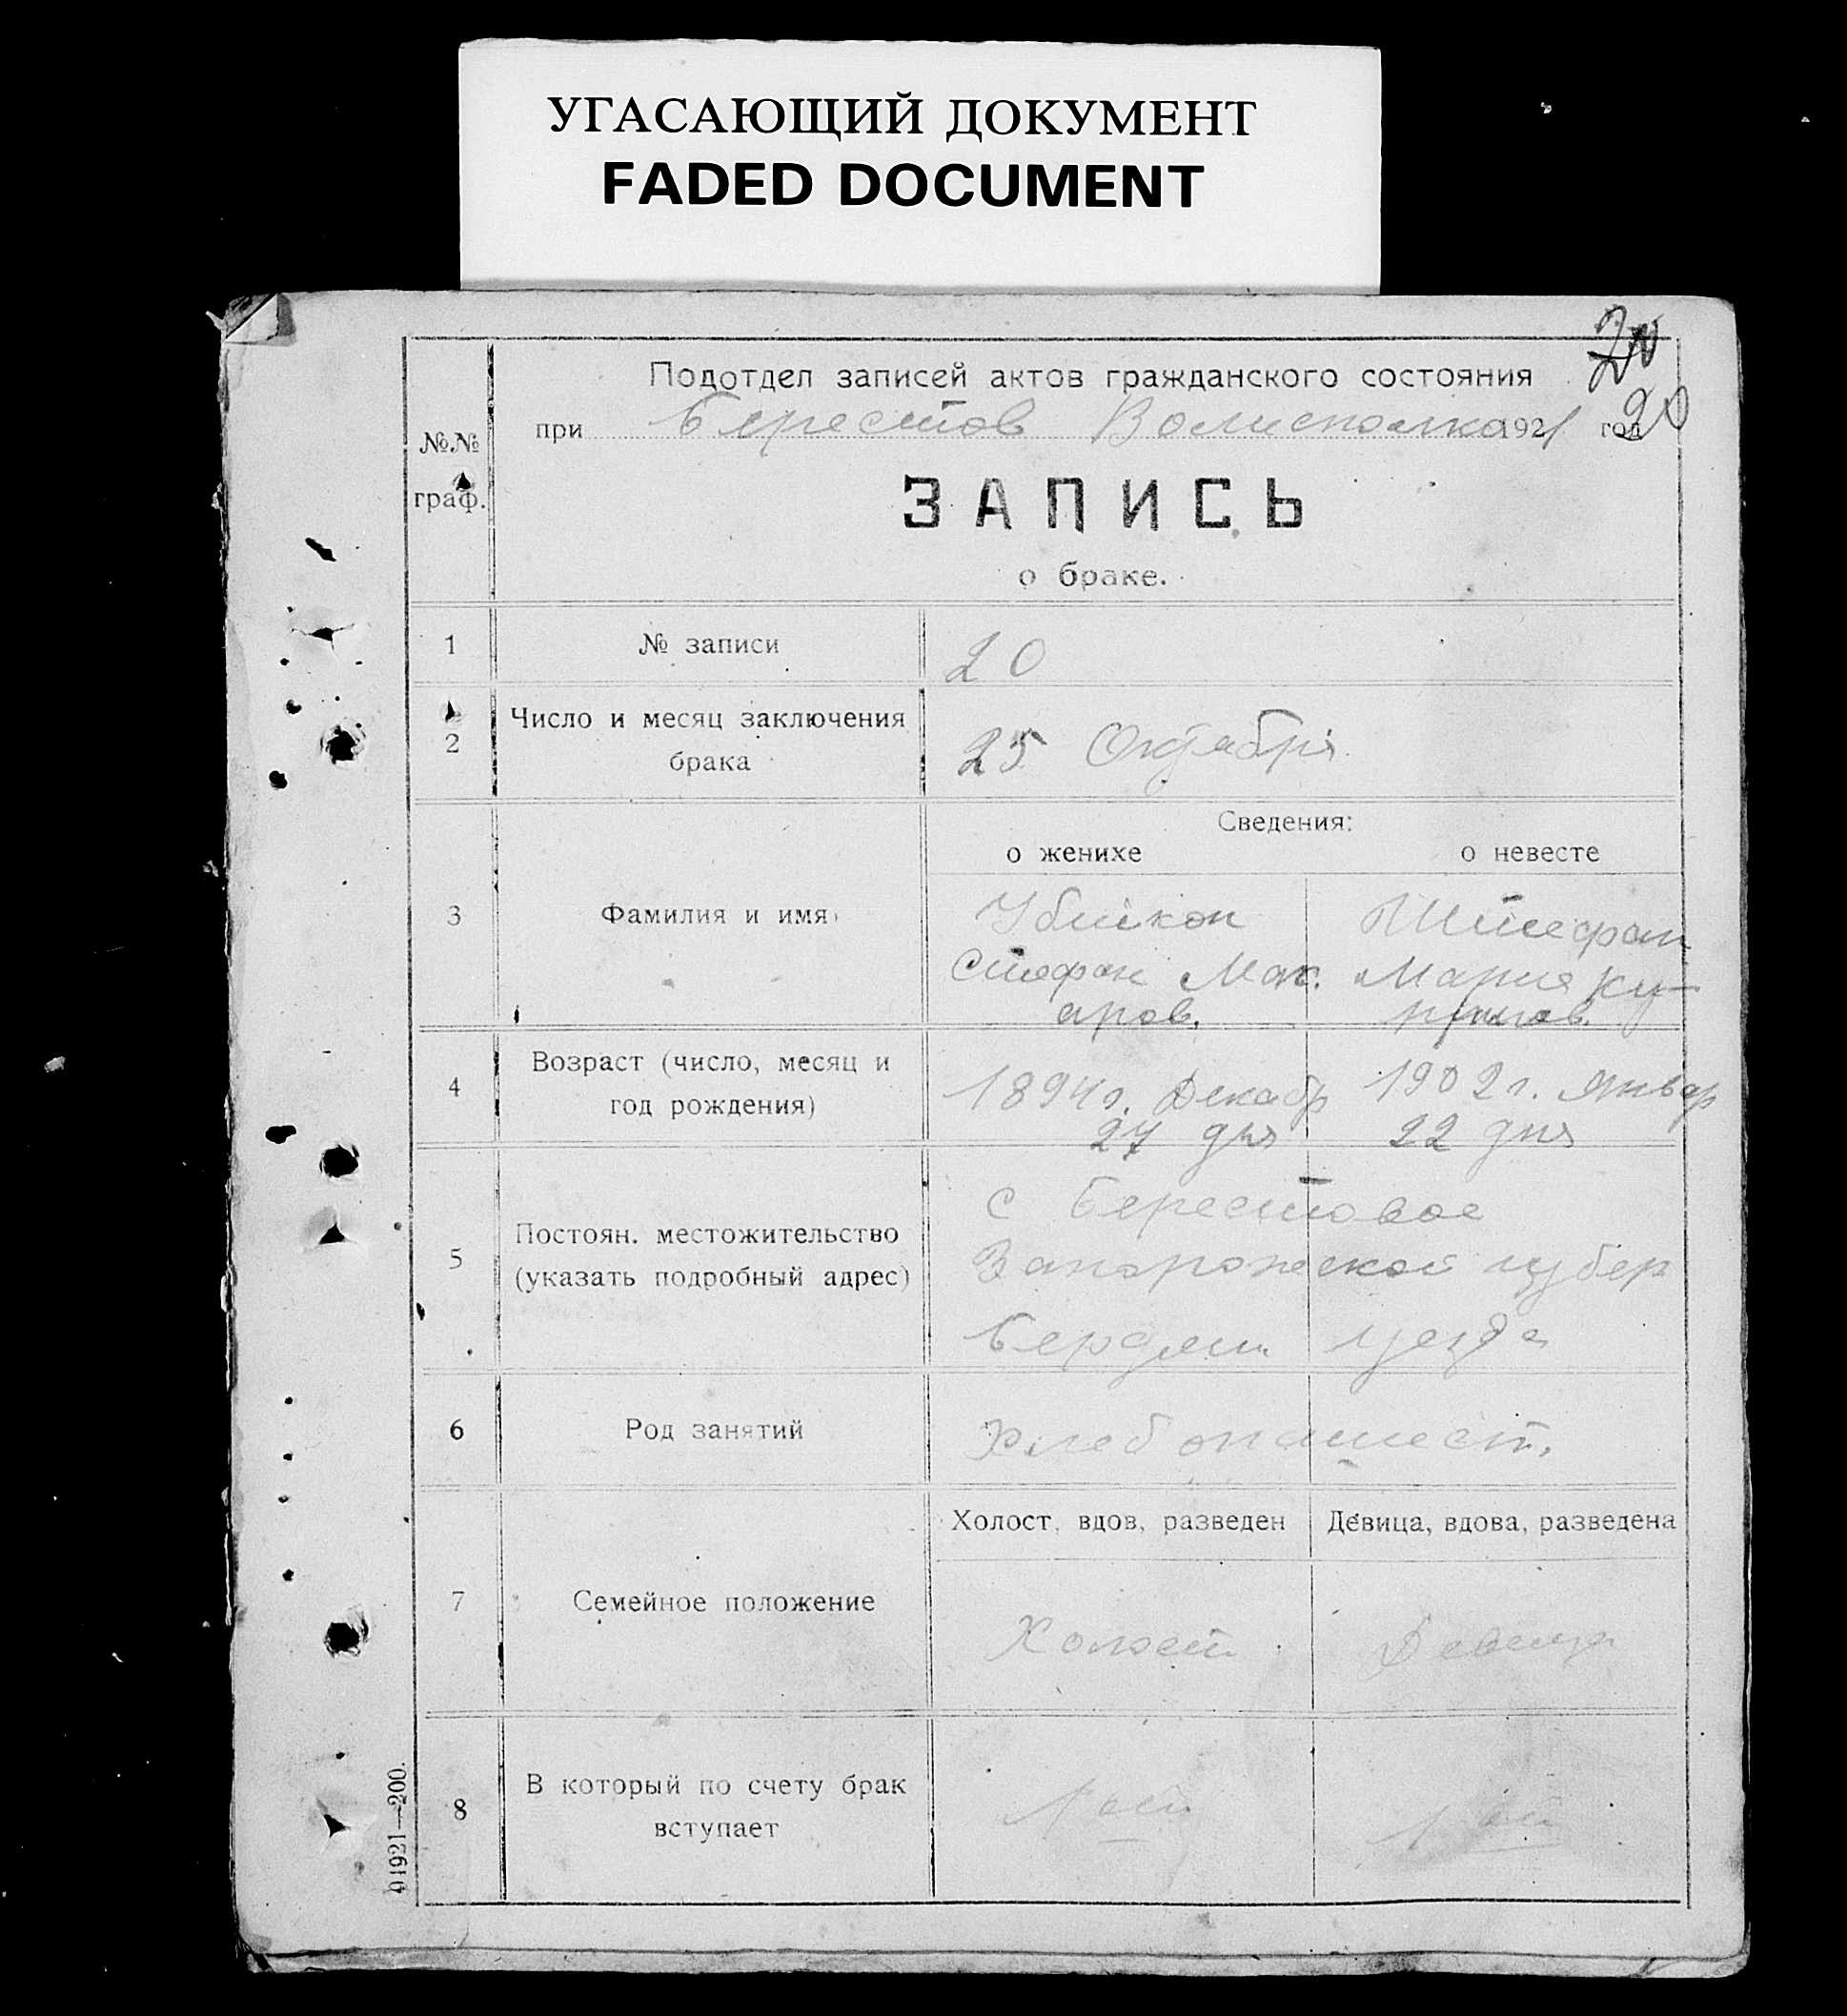 УГАСАЮЩИЙ ДОКУМЕНТ
FADED DOCUMENT
20
Подотдел записей актов гражданского состояния
при Берестов Волисполкома 1921 год
20
№№
граф.
ЗАПИСЬ
о браке.
1 № записи 20
2 Число и месяц заключения
брака
25 Октября
Сведения:
о женихе о невесте
3 Фамилия и имя
Стефан Мак. Мария
аров.
4 Возраст (число, месяц и
год рождения)
1894 г. Декабр 1902 г. Январ
27 дня 22 дня
5 Постоян. местожительство
(указать подробный адрес)
с Берестовое
Запорожской губер
Бердян. уезда
6 Род занятий Хлебопашест.
Холост, вдов, разведен Девица, вдова, разведена
7 Семейное положение
Холост Девица
8 В который по счету брак
вступает
1 ый 1 ый